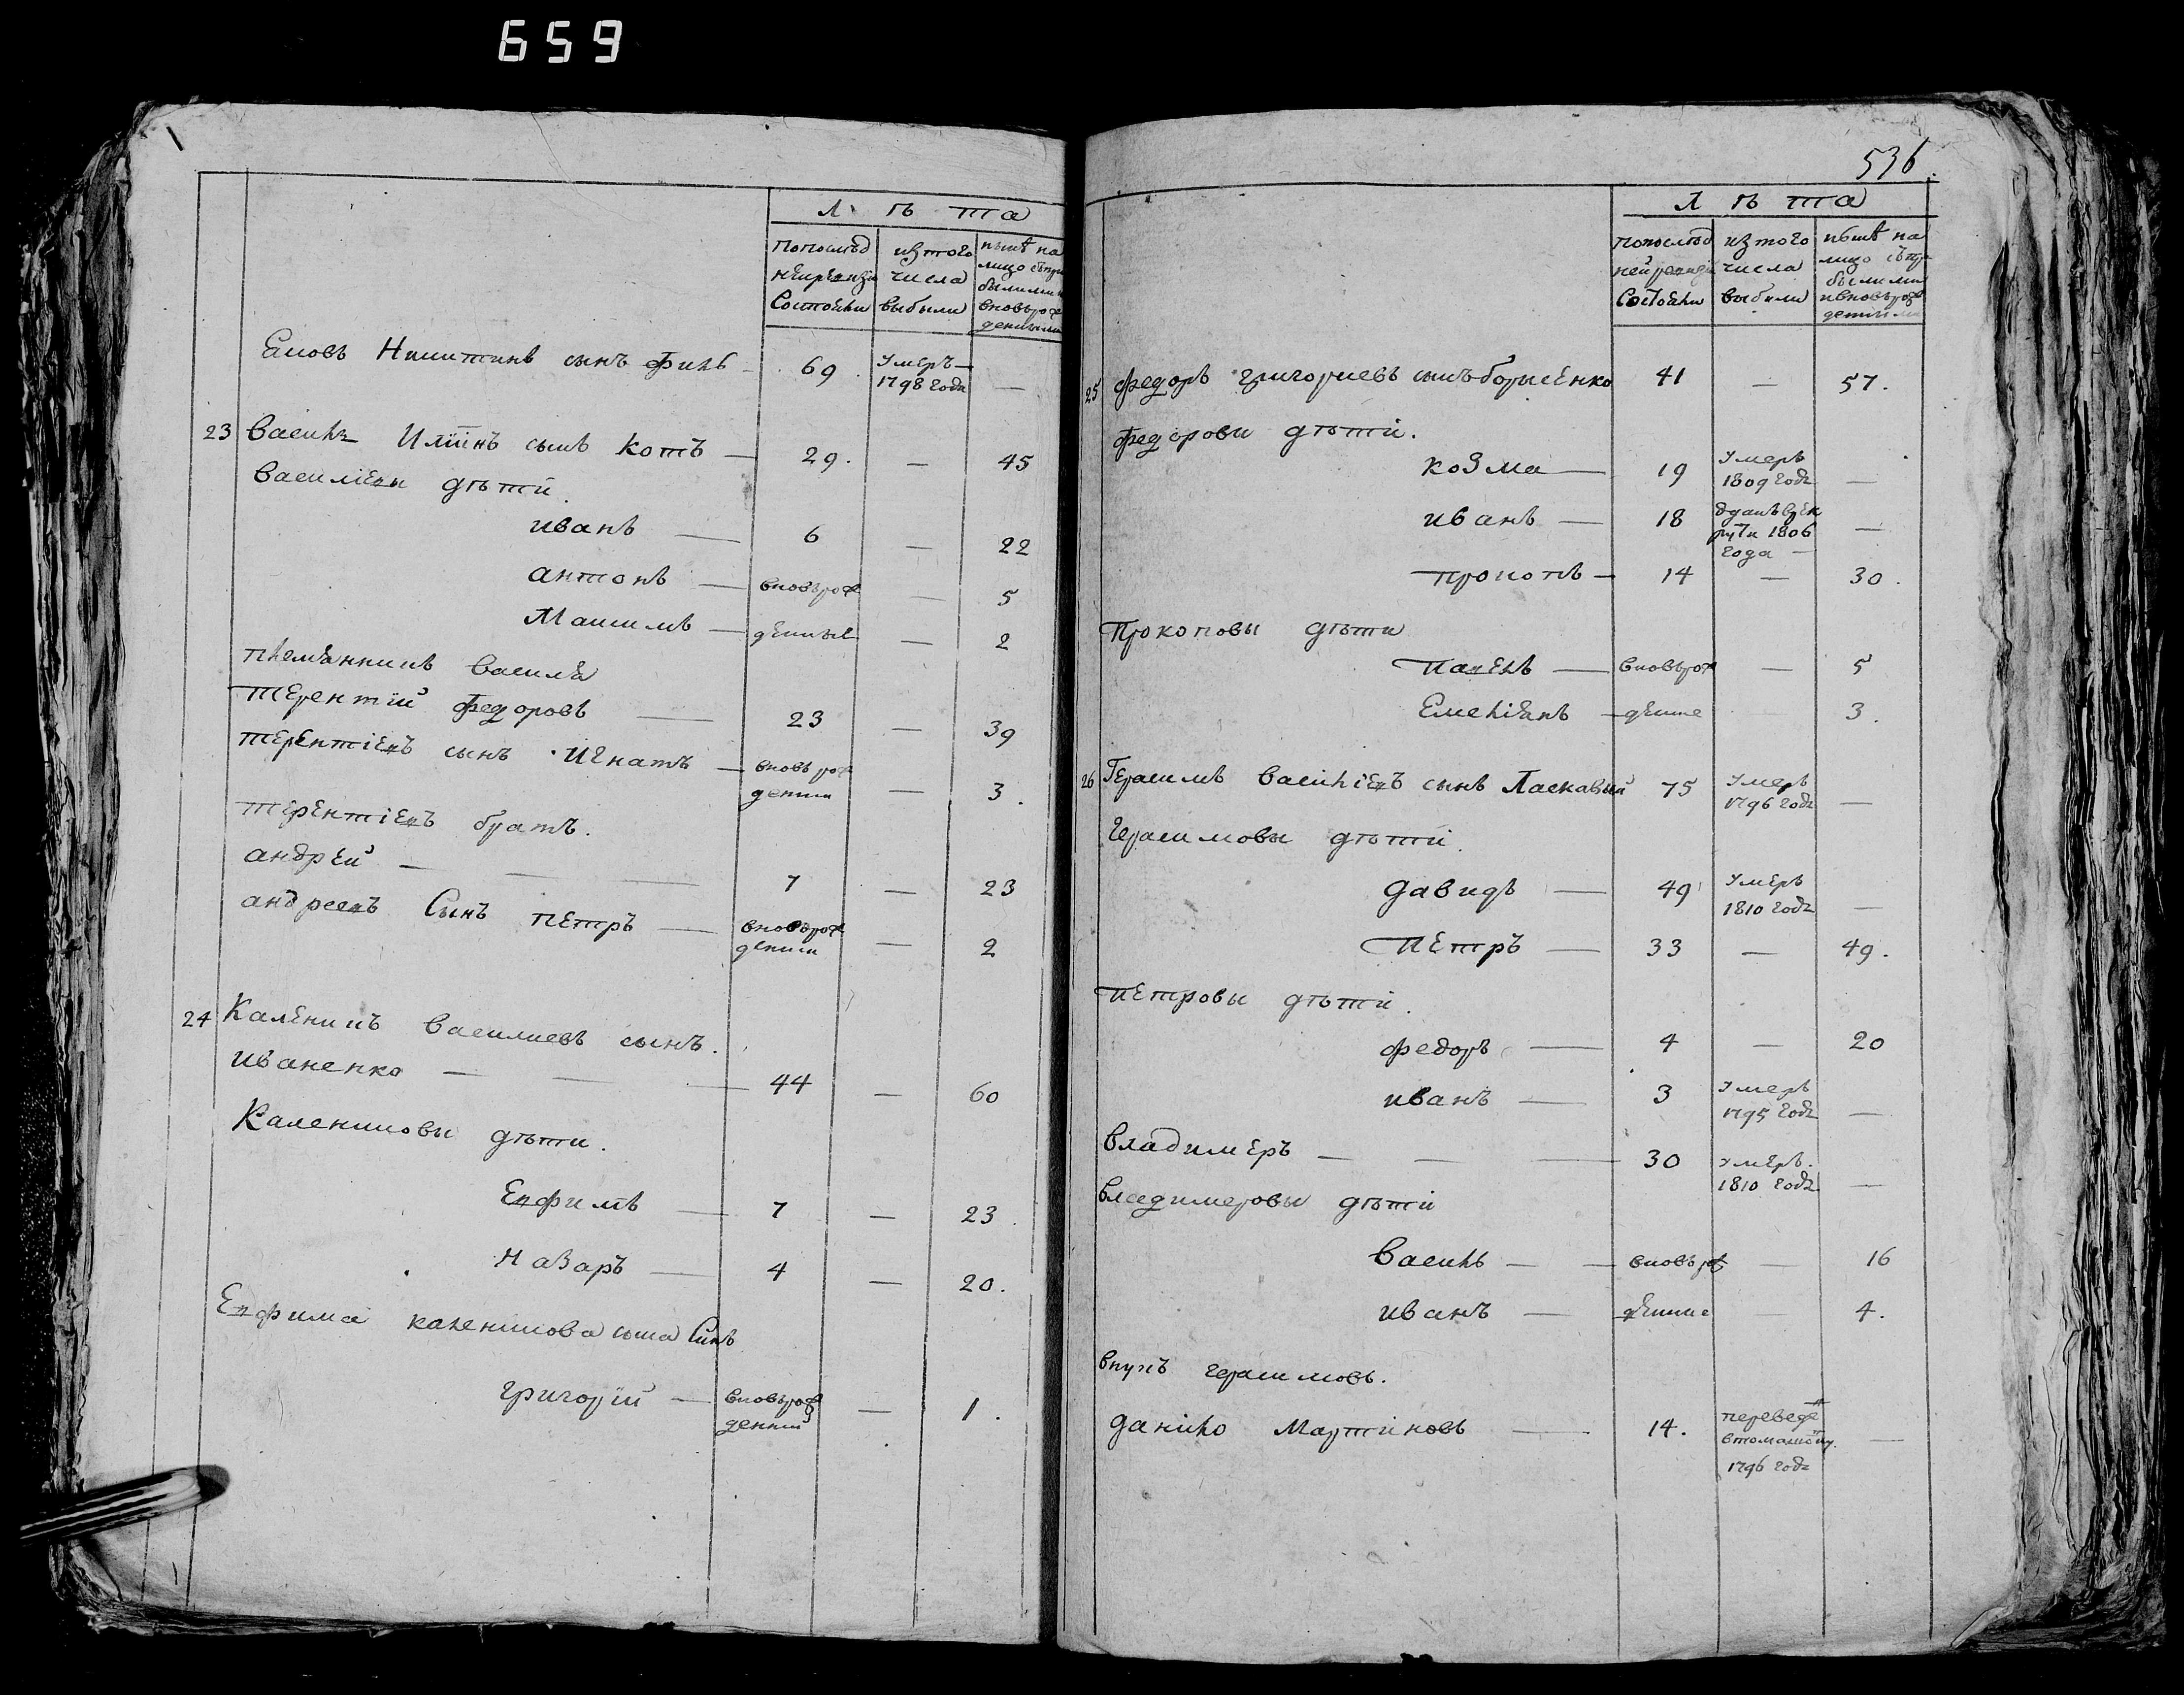 659
Л ѣ та
попослѣд изтого нынѣ на
нейревизіи числа лицо съпри
состояли выбыли былыми
вновърож
денными
Еловъ Никитинъ сынъ финъ 69 Умеръ —
1798 года —
23 Василь Илїинъ сынъ Котъ — 29. — 45
Василіевы дѣти.
иванъ — 6 — 22
антонъ — вновърож — 5
Максимъ — денные — 2
племянникъ Василя
терентій федоровъ — 23 — 39
терентіевъ сынъ Игнатъ — вновърож
денни — 3.
терентіевъ братъ.
андрей — — — 7 — 23
андреевъ Сынъ петръ — вновърож
денни — 2
24 Каленикъ василиевъ сынъ.
иваненко — — — 44 — 60
Калениковы дѣти.
Евфимъ — 7 — 23.
Назаръ — 4 — 20.
Евфима каленикова сына Сынъ
григорій — вновърож
денній — 1.
536.
Л ѣ та
попослѣд изтого нынѣ на
нейревизіи числа лицо съпри
состояли выбыли былыми
ивновърож
денными
25 федоръ григориевъ сынъ борисенко 41 — 57.
федоровы дѣти.
козма — 19 Умеръ
1809 года —
иванъ — 18 Отданъ врек
руты 1806
года — —
прокопъ — 14 — 30.
Прокоповы дѣти
павелъ — вновърож — 5
Емеліянъ — денные — 3.
26 Герасимъ василіевъ сынъ Ласкавый 75 Умеръ
1796 года —
герасимовы дѣти.
давидъ — 49 Умеръ
1810 года —
Петръ — 33 — 49.
петровы дѣти.
федоръ — 4 — 20
иванъ — 3 Умеръ
1795 года —
владимеръ — — — 30 умеръ.
1810 года —
владимеровы дѣти
василь — — вновърож — 16
иванъ — денные — 4.
внукъ герасимовъ.
данило Мартиновъ — 14. переведе
1796 года —